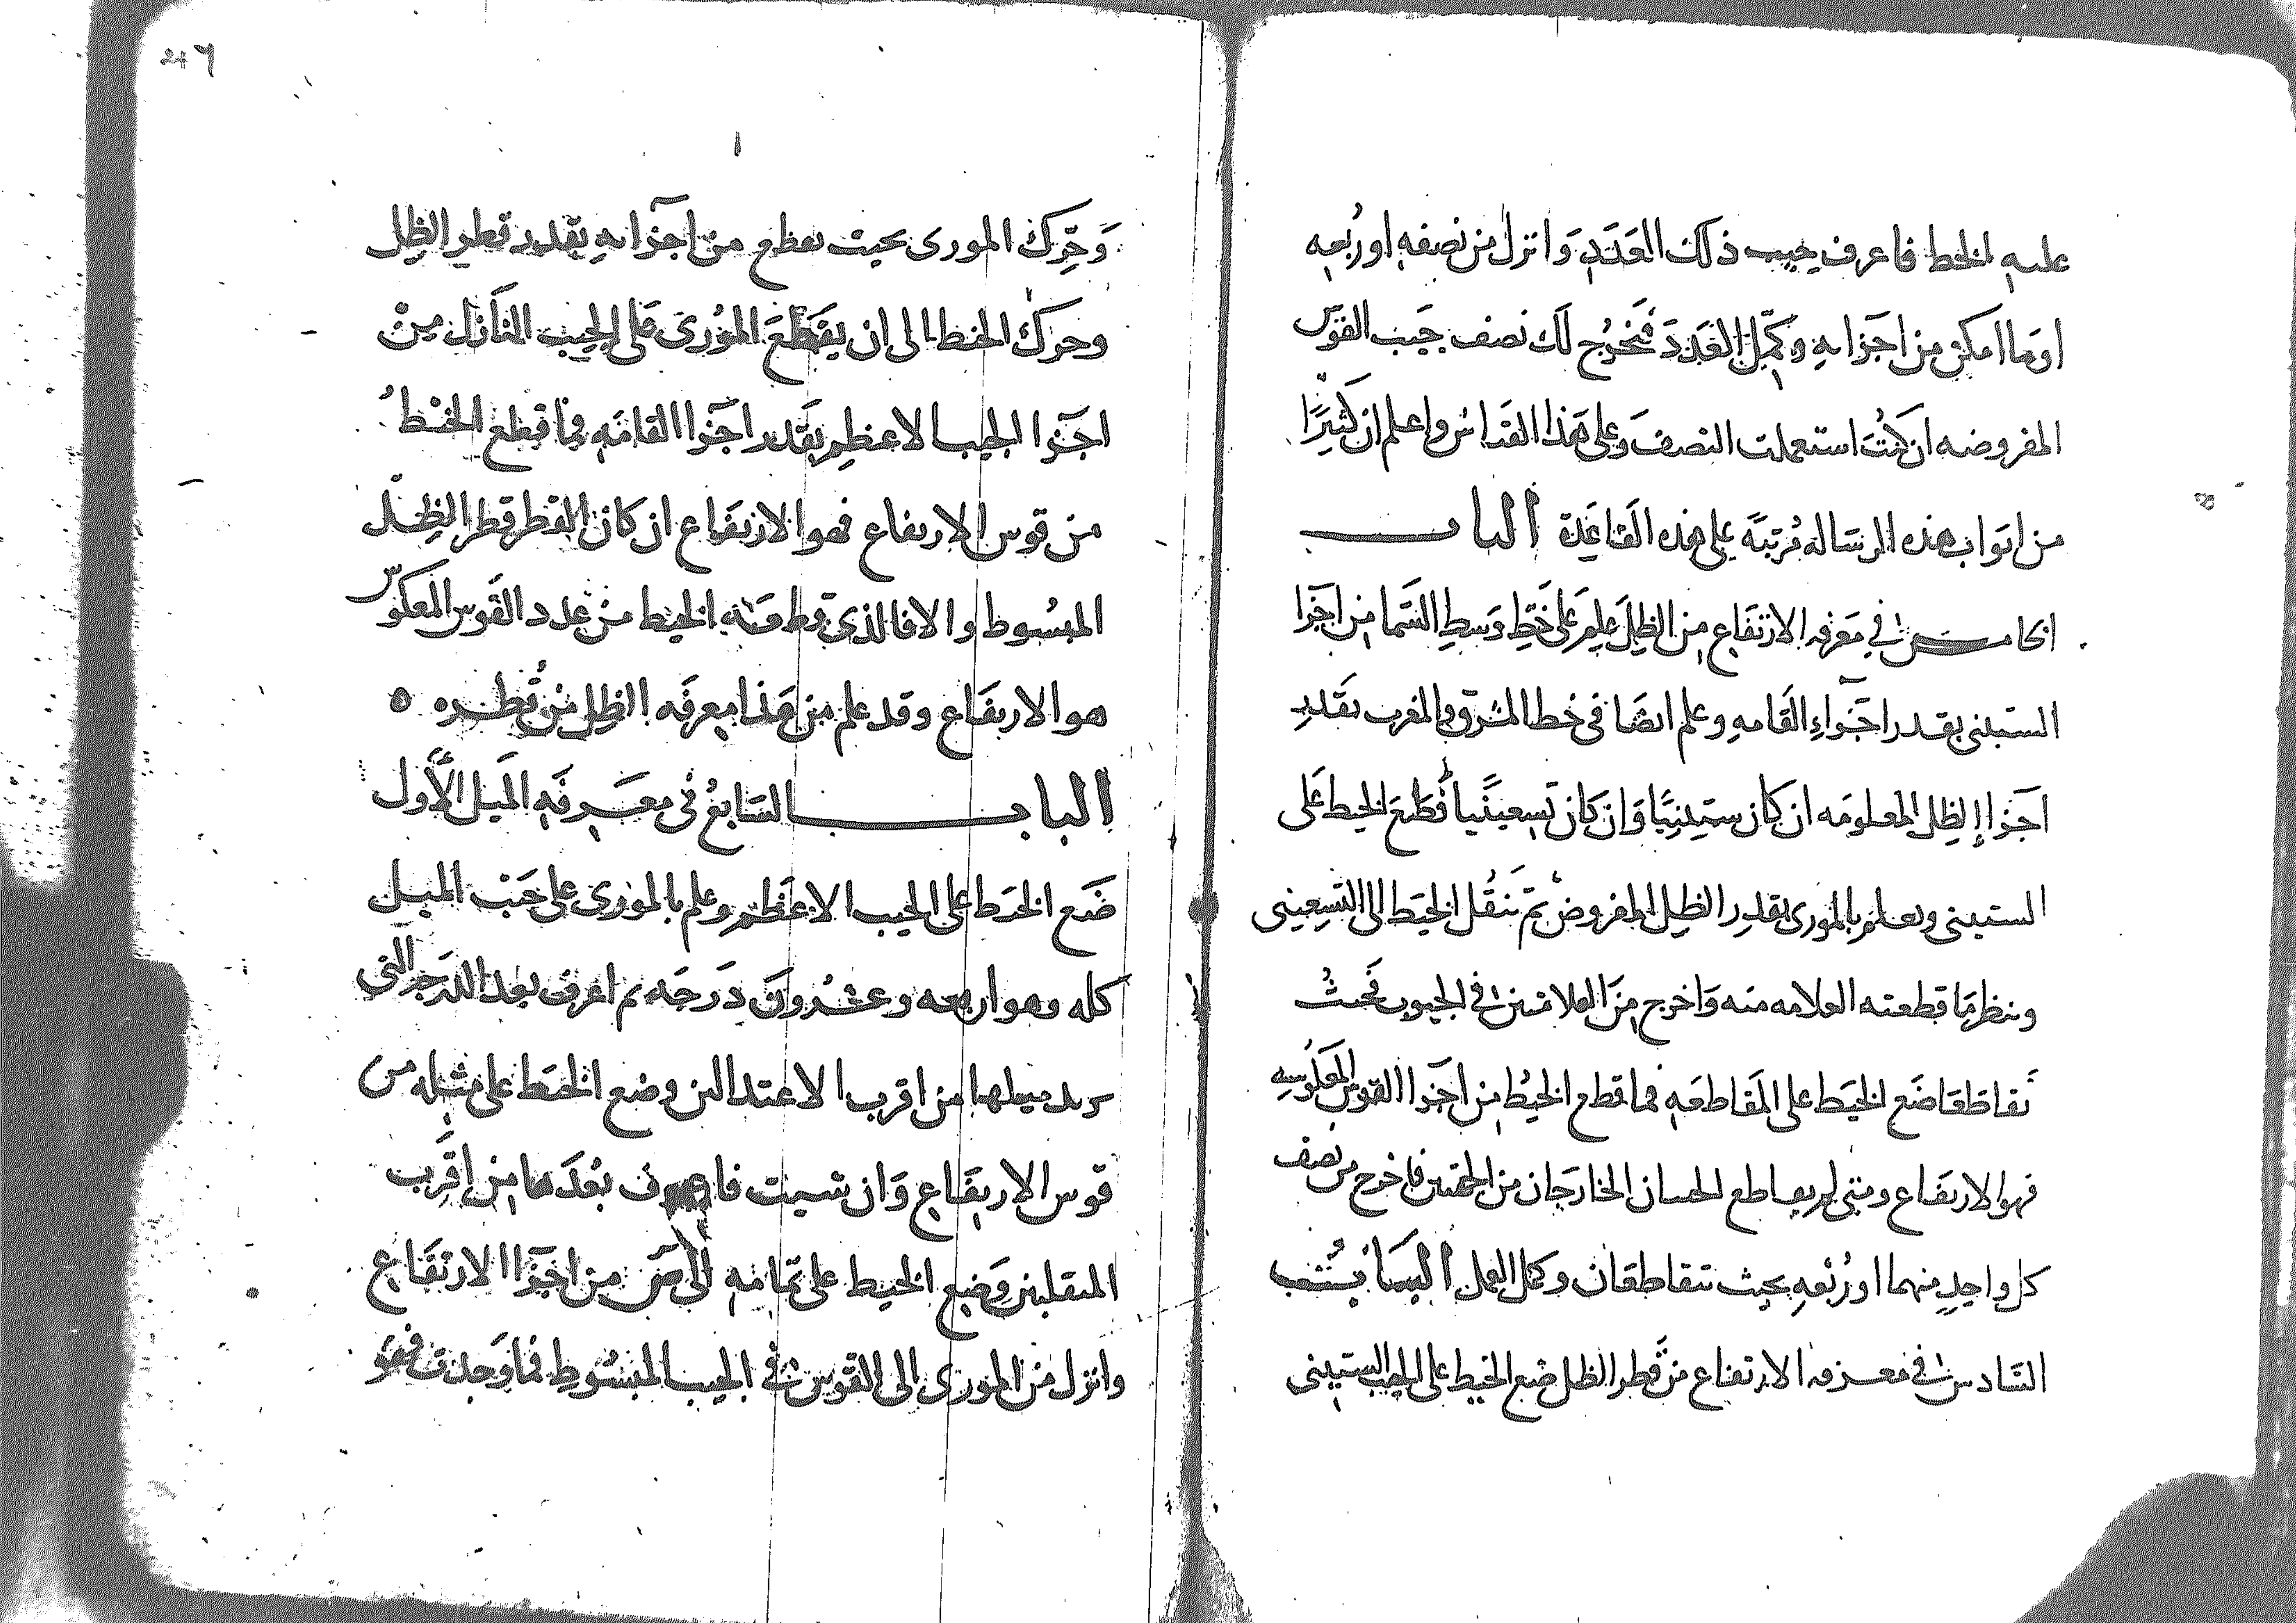 عليه الخط فاعرف جيب ذلك العَدَدِ وَانزل من نصفه اورُبعه
اوما امكن من اجزايه وكمّل العَدَدَ فَتخرُج لك نصف جَيب القوس
المفروضه ان كنتَ استعملت النصفَ وعلى هذا القياس واعلم ان كثيرًا
من ابواب هذه الرسَاله مُرتبَة على هذه القَاعِدة البَاب
الخامس في مَعرفه الارتفَاع من الظِل علم عَلى خَط وَسط السَّما من اجزا
الستيني بقدر اجزاءِ القَامهِ وعلم ايضَا في خط المشرق والمغرب بقَدرِ
اجزا الظِل المعلومَه ان كان ستِينيًا وَان كان تسعينيًا فَطَع الخيط عَلى
الستيني وتعلم بالمورى بقدرِ الظِل المفروض ثم تنقُل الخيَط الى التسِعينى
وتنظر مَا قطعته العلامه منه وَاخرج مِنَ العلامتين في الجيوب فحيث
تقاطعَا ضَع الخيَط على المقَاطعَه فما قطع الخيطُ من اجزا القوس المعكوسه
فهو الارتفَاع ومتى لم يتقاطع الجيبان الخارجَان من الجهتين فاخرج من نصف
كل واحدٍ منهما او رُبعهِ بحيث تتقاطعَان وكمل العمل البَابُ
السَّادس في معرفه الارتفاع من قطر الظل ضع الخيط على الجيب الستيني
247
وَحَرِّك المورى بحيث يقطع من اَجزايهِ بقدر قطر الظِل
وحرك الخيط الى ان يَقَطعَ المُورى عَلى الجيب النَازل مِنْ
اجزا الجيب الاعظِم بقَدر اجزا القامَه فما قطع الخيْطُ
من قوس الارتفاع فهو الارتفَاع ان كان القطر قطر الظِل
المبسُوط والا فالذى قطعَه الخيط من عدد القَوس المعكوس
هو الارتفَاع وقد علم من هَذا معرفَه الظِل من قُطره ٥
البابـ السَابعُ فى معرفَه الميل الأول
ضَع الخيَط على الجيب الاعَظم وعلم بالمورى على جَيْب الميل
كله وهو اربعه وعشرونَ دَرَجَه ثم اعرف بعد الدرَجه التى
تريد ميلها من اقرب الاعتدالين وضع الخيَط على مثله من
قوس الارتفَاع وَان شيت فاعرف بُعدَها من اقَرب
المنقلبين وَضع الخيط على تمامه الى ص من اجَزا الارتفَاع
وانزل من المورى الى القَوس في الجيب المبسُوط فما وَجدت فهو